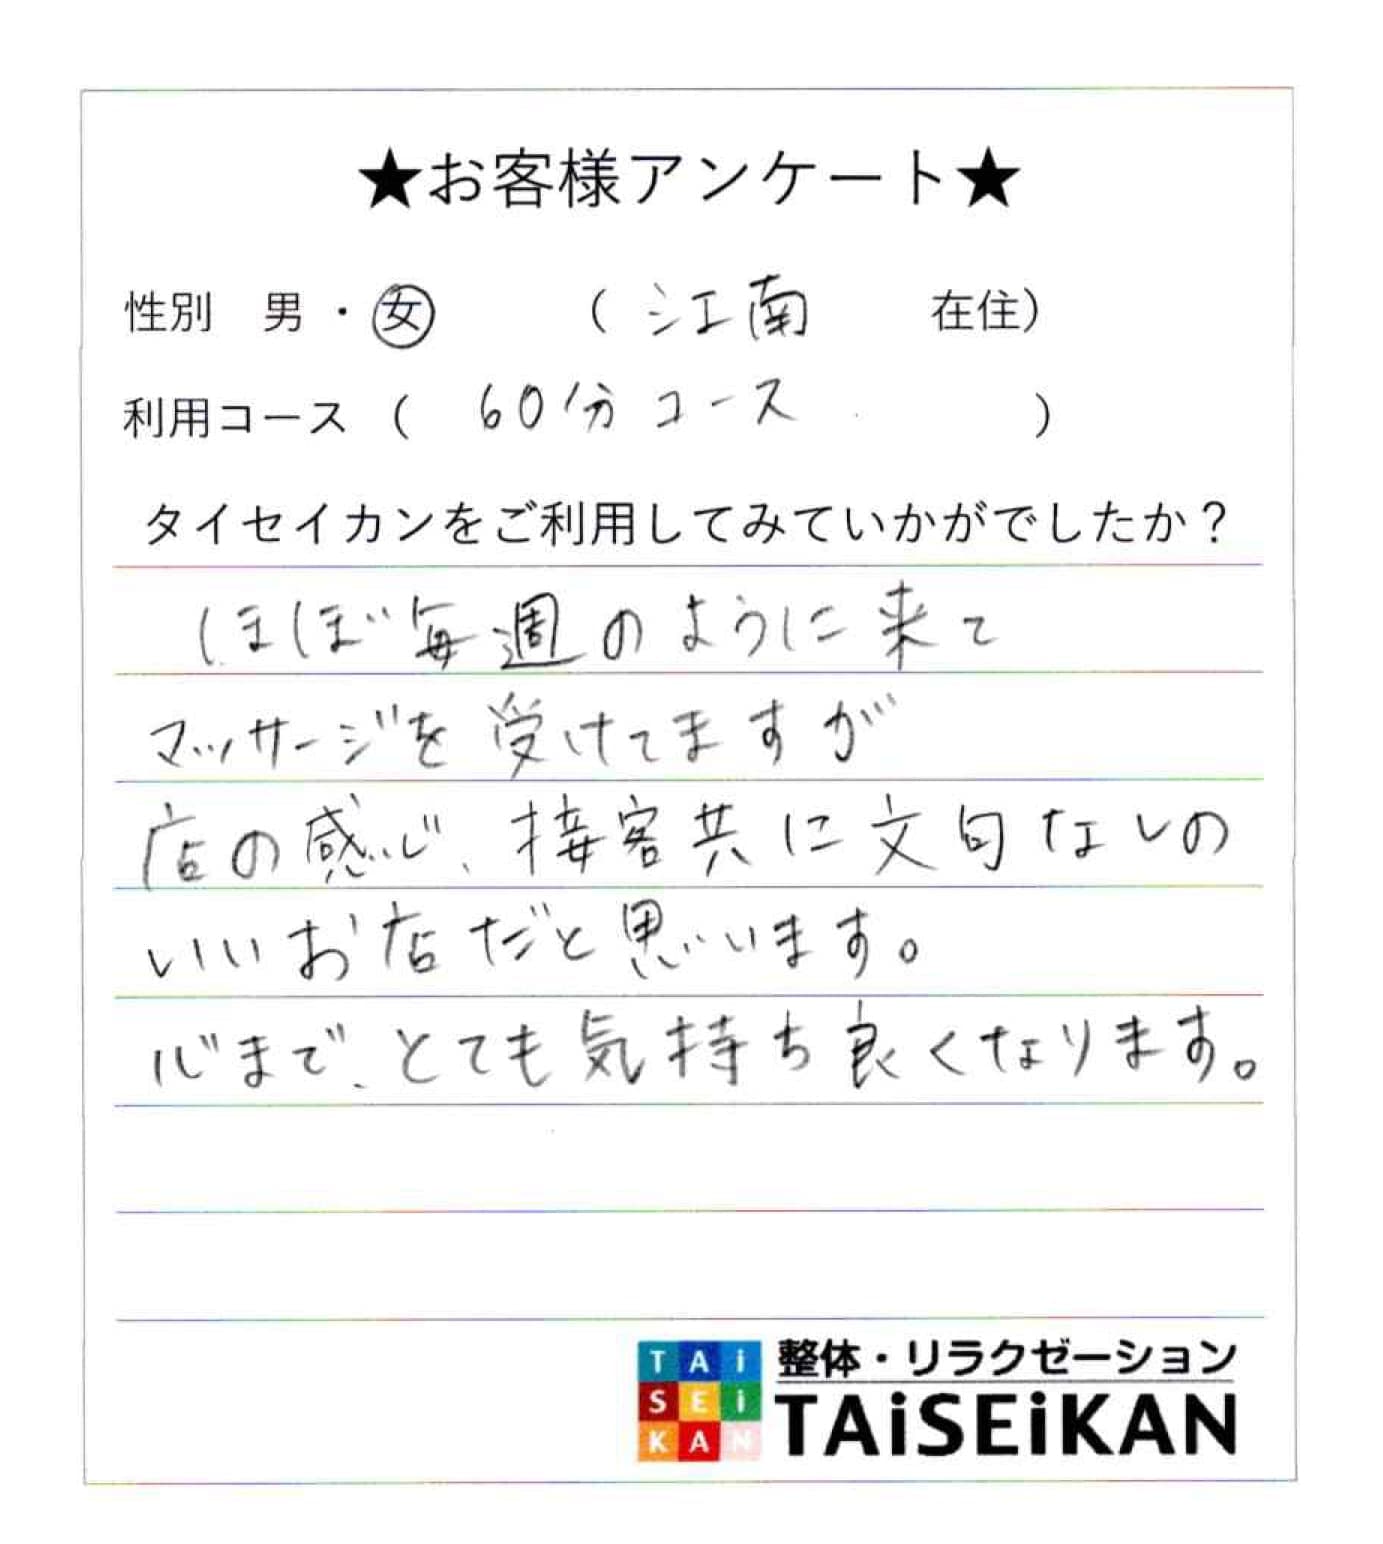 ★お客様アンケート★
性別 男・女 (江南 在住)
利用コース ( 60分コース )
タイセイカンをご利用してみていかがでしたか?
ほぼ毎週のように来て
マッサージを受けてますが
店の感じ、接客共に文句なしの
いいお店だと思います。
心まで、とても気持ち良くなります。
TAi
SEi
KAN
整体・リラクゼーション
TAiSEiKAN